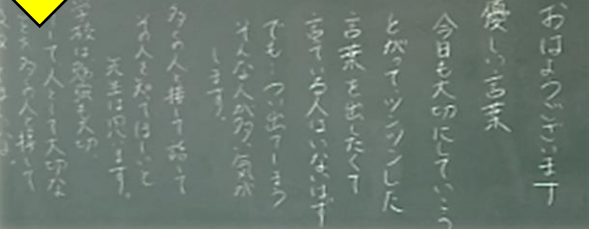 おはようございます
優しい言葉
今日も大切にしていこう
とがってツンツンした
言葉を出したくて
言ている人はいないはず
でも…つい出てしまう
そんな人が多い気が
します。
多くの人と接して話して
その人を知てほしいと
先生は思います。
学校は勉強も大切
して人として大切な
多くの人と接して